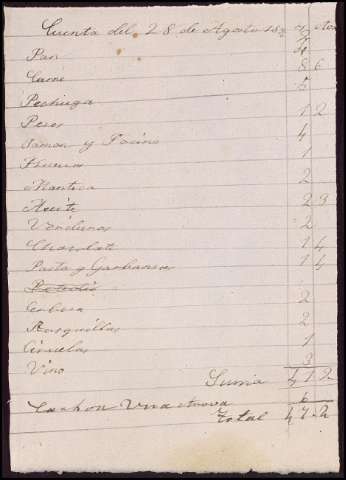 Cuenta del 28 de Agosto 18
Pan 4
Carne 8 6
Pechuga 5
Peras 1 2
Jamon y Tocino 4
Huevos 1
Manteca 2
Aceite 2 3
Verduras 2
Chocolate 1 4
Pasta y Garbanzos 1 4
Petroleo
Cerbeza 2
Rosquillas 2
Ciruelas 1
Vino 3
Suma 41 2
Carbon 6
Total 47 2